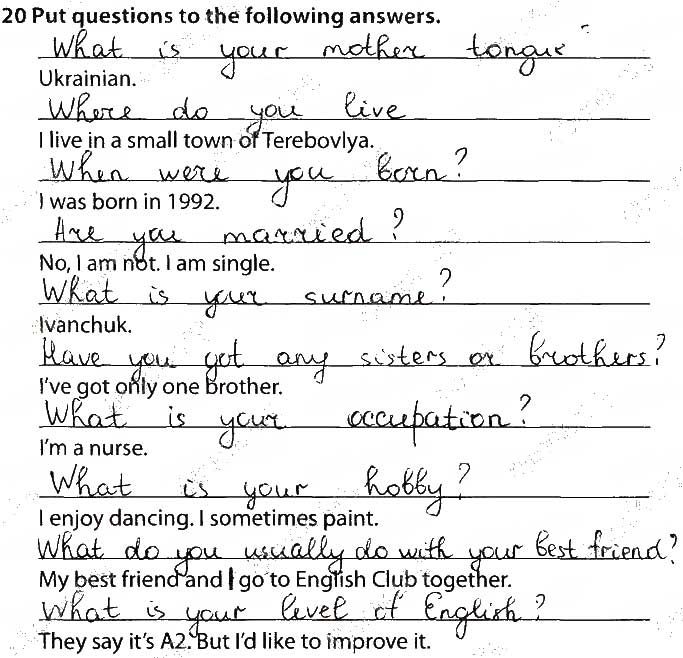 20 Put questions to the following answers.
What is your mother tongue
Ukrainian.
Where do you live
I live in a small town of Terebovlya.
When were you born?
I was born in 1992.
Are you married?
No, I am not. I am single.
What is your surname?
Ivanchuk.
Have you got any sisters or brothers?
I've got only one brother.
What is your occupation?
I'm a nurse.
What is your hobby?
I enjoy dancing. I sometimes paint.
What do you usually do with your best friend?
My best friend and I go to English Club together.
What is your level of English?
They say it's A2. But I'd like to improve it.